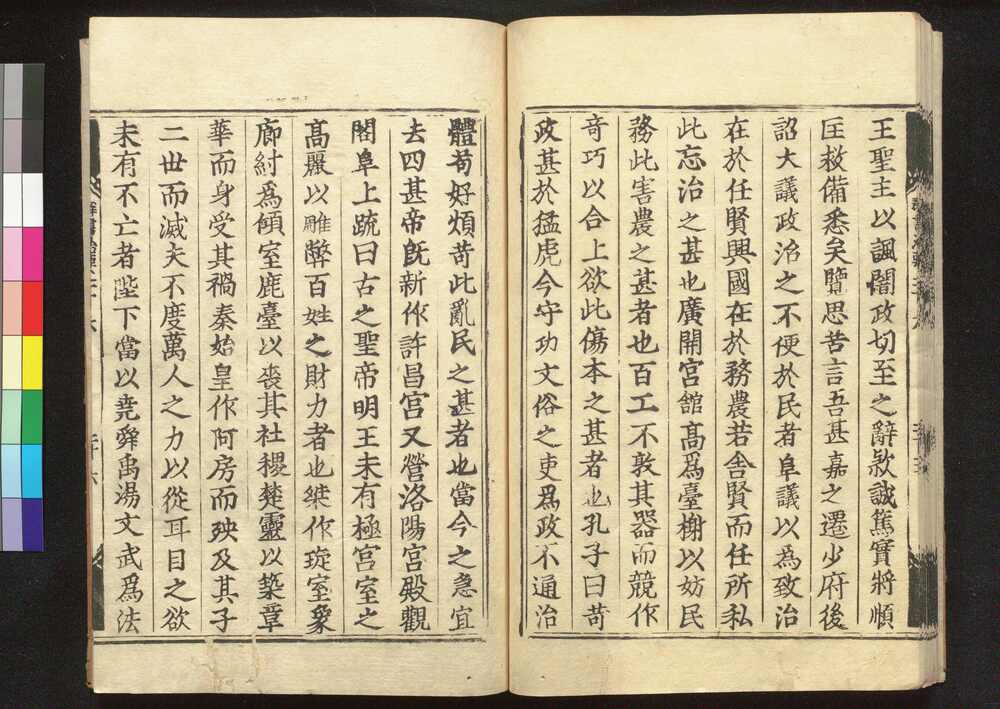 王聖主以諷闇政切至之辭款誠篤實將順
匡救備悉矣覽思苦言吾甚嘉之遷少府後
詔大議政治之不便於民者阜議以為致治
在於任賢興國在於務農若舍賢而任所私
此忘治之甚也廣開宮館高爲臺榭以妨民
務此害農之甚者也百工不敦其器而競作
奇巧以合上欲此傷本之甚者也孔子曰苛
政甚於猛虎今守功文俗之吏爲政不通治
體苟好煩苛此亂民之甚者也當今之急宜
去四甚帝既新作許昌宮又營洛陽宮殿觀
閣阜上疏曰古之聖帝明王未有極宮室之
高麗以雕弊百姓之財力者也桀作琁室象
廊紂爲傾室鹿臺以喪其社稷楚靈以築章
華而身受其禍秦始皇作阿房而殃及其子
二世而滅夫不度萬人之力以從耳目之欲
未有不亡者陛下當以堯舜禹湯文武爲法
群書治要二十六
二十六